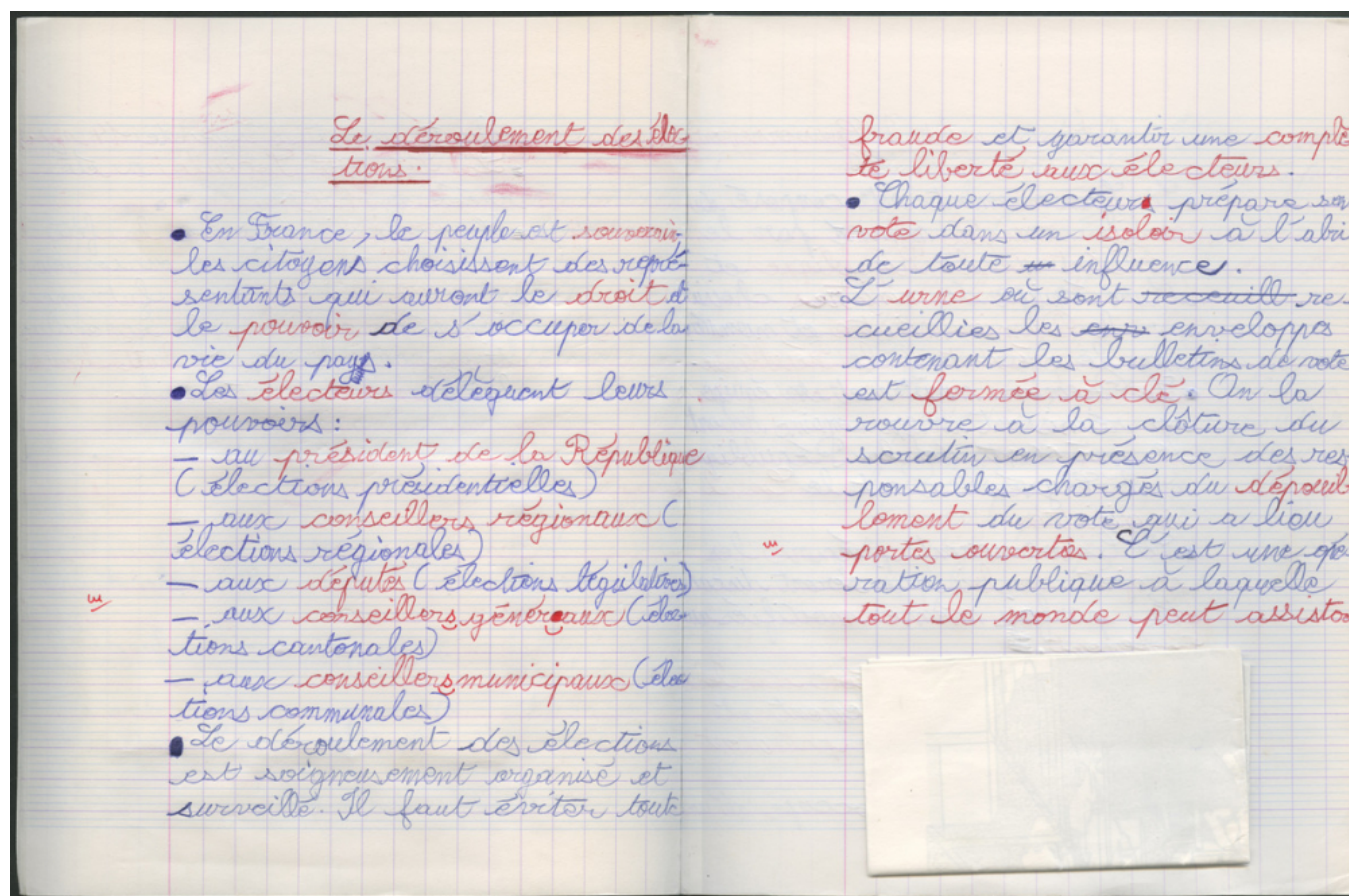 Le déroulement des élec
tions.
• En France, le peuple est souverain,
les citoyens choisissent des repré-
sentants qui auront le droit et
le pouvoir de s'occuper de la
vie du pays.
• Les électeurs délèguent leurs
pouvoirs :
— au président de la République
(élections présidentielles)
— aux conseillers régionaux (
élections régionales)
— aux députés (élections législatives)
— aux conseillers généraux (élec
tions cantonales)
— aux conseillers municipaux (élec
tions communales)
• Le déroulement des élections
est soigneusement organisé et
surveillé. Il faut éviter toute
fraude et garantir une complè
te liberté aux électeurs.
• Chaque électeur prépare son
vote dans un isoloir à l'abri
de toute influence.
L'urne où sont receuill re
cueillies les env enveloppes
contenant les bulletins de vote
est fermée à clé. On la
rouvre à la clôture du
scrutin en présence des res
ponsables chargés du dépouil
lement du vote qui a lieu
portes ouvertes. C'est une opé
ration publique à laquelle
tout le monde peut assister